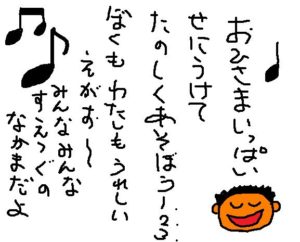 おひさまいっぱい
せにうけて
たのしくあそぼうー23
ぼくもわたしもうれしい
えがお〜
みんなみんな
すえっぐの
なかまだよ